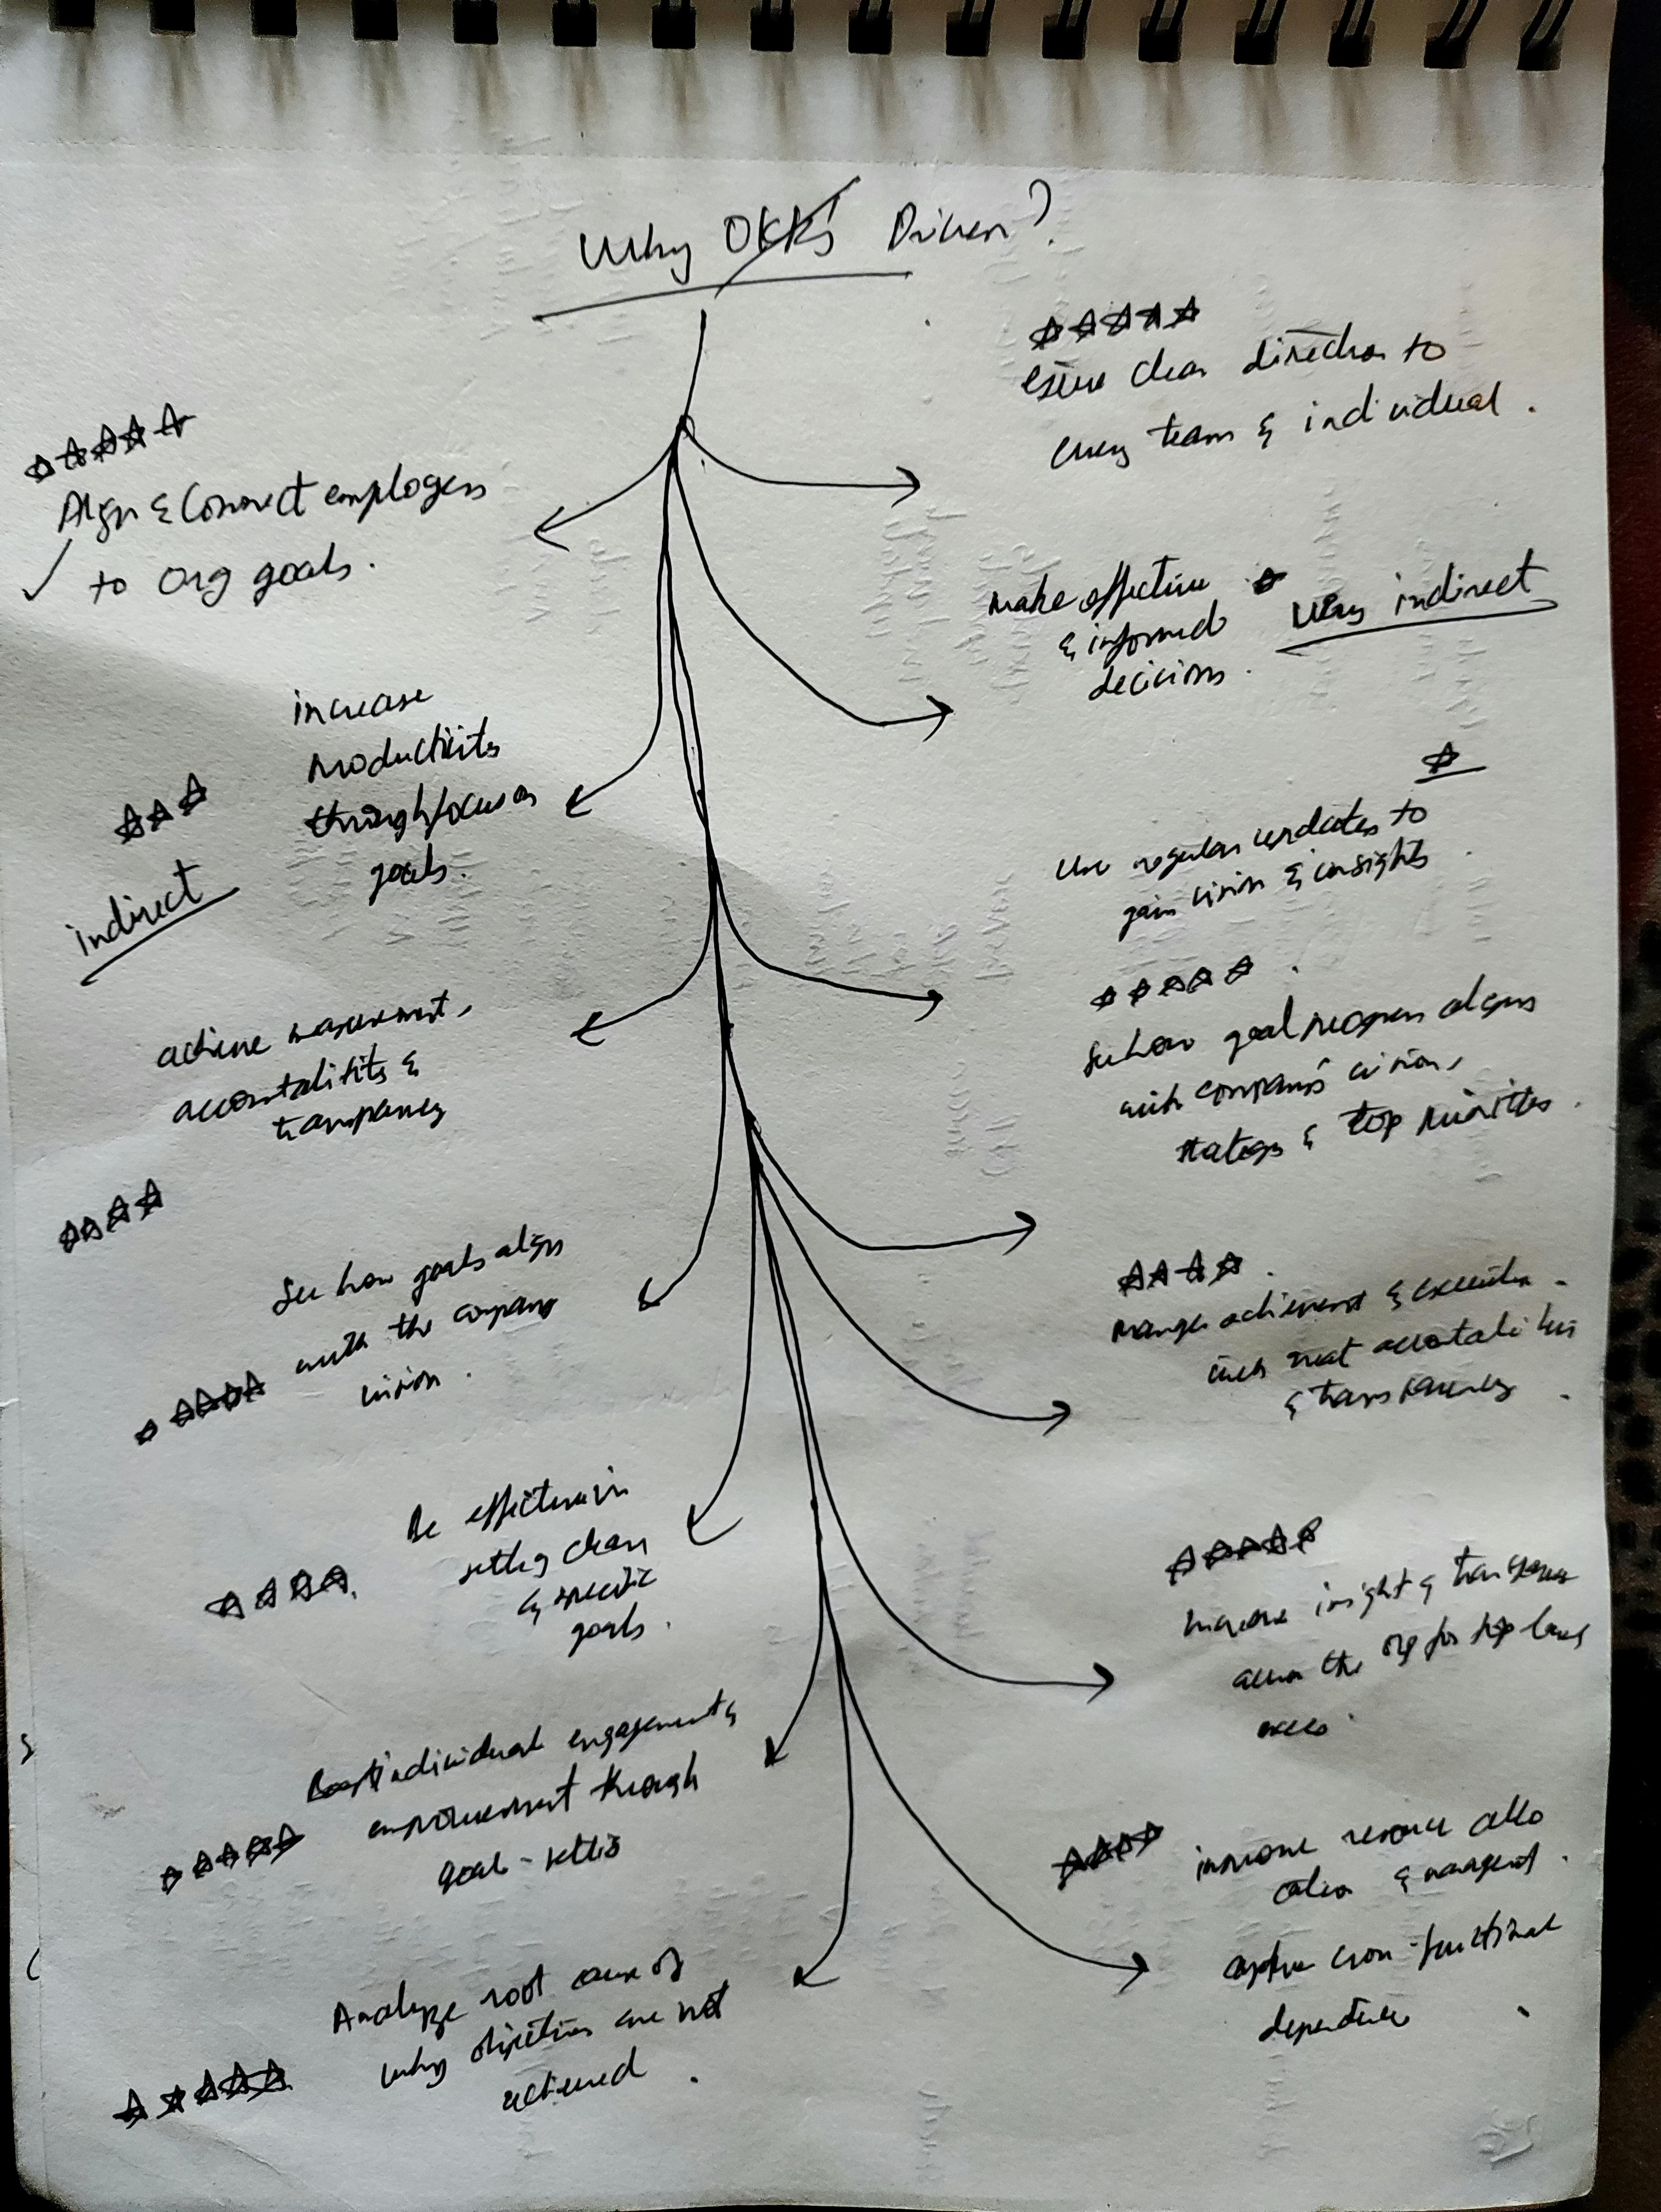 Why OKR's Driven?
Align & Connect employees
to org goals.
increase
productivity
through focus on
goals.
indirect
achieve measurement,
accountability &
transparency
See how goals align
with the company
vision.
Be effective in
setting clear
& specific
goals.
Boost individual engagement &
empowerment through
goal-setting
Analyze root cause of
why objectives are not
achieved
clear direction to
every team & individual.
make effective
& informed
decisions.
Very indirect
Use regular updates to
gain vision & insights
See how goal progress aligns
with company's vision,
strategy & top priorities.
Manage achievement & execution
with great accountability
& transparency
Improve insight & transparency
across the org for top level
execs.
improve resource allo
cation & management.
capture cross-functional
dependencies